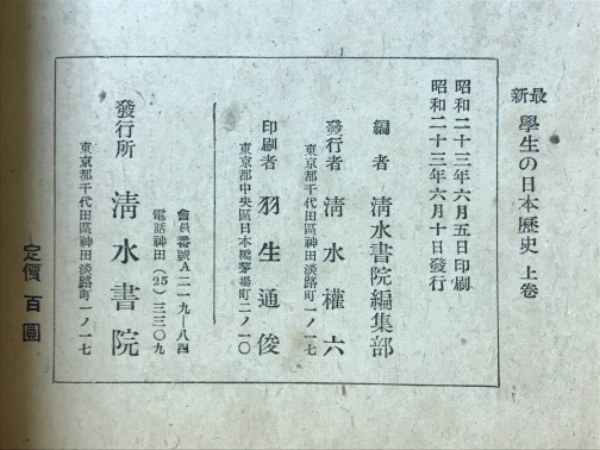 最新 學生の日本歷史 上卷
昭和二十三年六月五日印刷
昭和二十三年六月十日發行
編者 淸水書院編集部
發行者 淸水權六
東京都千代田區神田淡路町一ノ一七
印刷者 羽生通俊
東京都中央區日本橋茅場町二ノ一〇
會員番號A二一九—八四
電話神田(25)三三〇九
發行所 淸水書院
東京都千代田區神田淡路町一ノ一七
定價 百圓